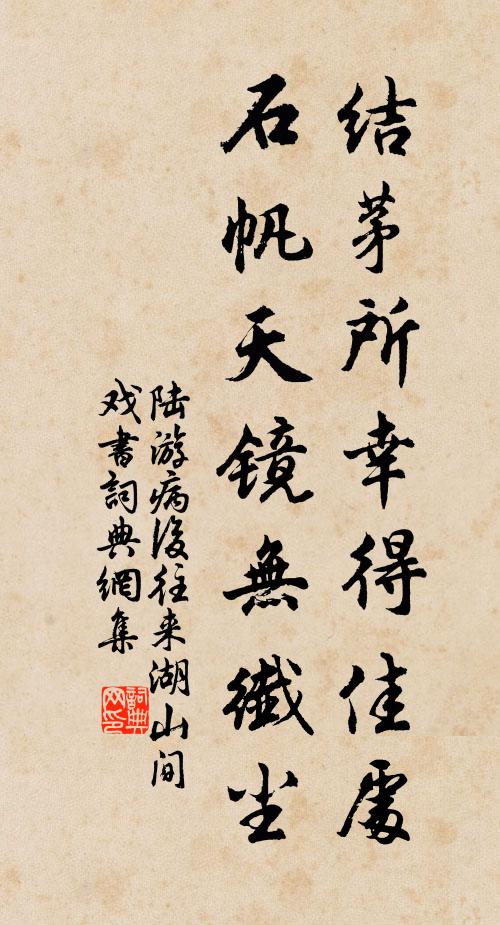 结茅所幸得佳處
石帆天镜無纖尘
陆游病後往来湖山间
戏書詞典網集
詞典
网印